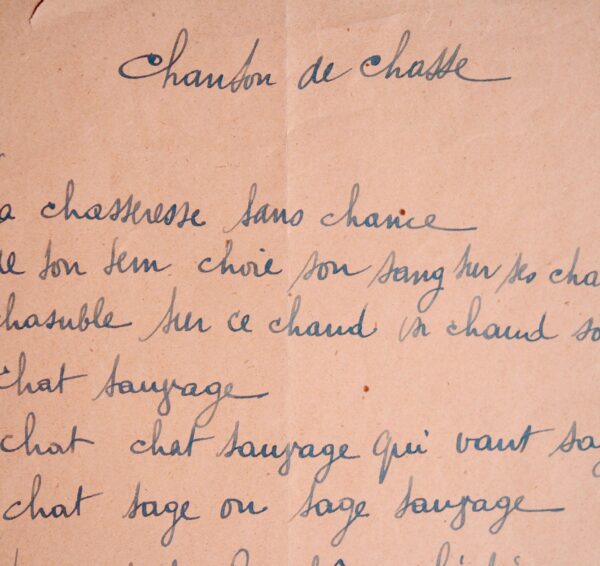 Chanson de chasse
a chasseresse sans chance
de son sein choie son sang sur ses cha
chasuble sur ce chaud si chaud so
chat sauvage
chat chat sauvage qui vaut sag
chat sage ou sage sauvage